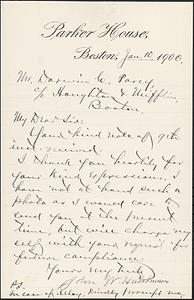 Parker House,
Boston, Jan. 10 1900.
Mr. Darwin C. Pavey,
c/o Houghton & Mifflin,
Boston.
My Dear Sir:
Your kind note of 9th
inst. received.
I thank you heartily for
your kind expressions. I
have not at hand such a
photo as I would care to
send you at the present
time, but will charge my
self with your request for
future compliance.
Yours very truly,
John W.
P.S.
In case of delay, kindly prompt me.